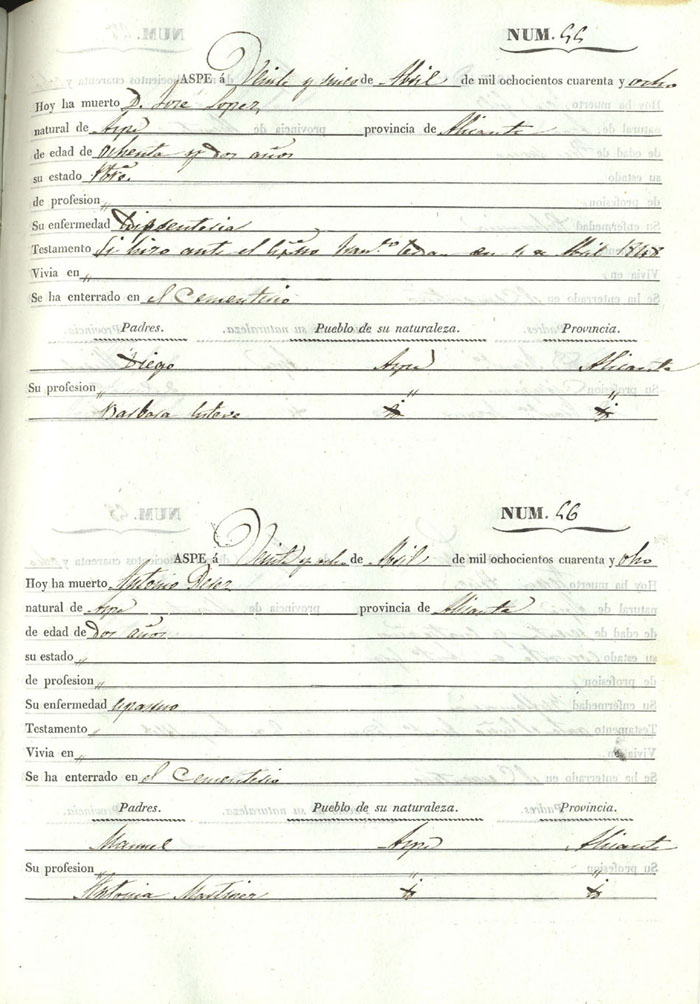 NUM. 44
ASPE á Veinte y cinco de Abril de mil ochocientos cuarenta y ocho
Hoy ha muerto D. José Lopez
natural de Aspe provincia de Alicante
de edad de ochenta y dos años
su estado Pbro.
de profesion "
Su enfermedad Disenteria
Testamento Si hizo ante el en 4 de Abril 1848
Vivia en "
Se ha enterrado en el Cementerio
Padres. Pueblo de su naturaleza. Provincia.
Diego Aspe Alicante
Su profesion " " "
Barbara Esteve id id
NUM. 46
ASPE á Veinte y ocho de Abril de mil ochocientos cuarenta y ocho
Hoy ha muerto Antonio Diez
natural de Aspe provincia de Alicante
de edad de dos años
su estado "
de profesion "
Su enfermedad espasmo
Testamento "
Vivia en "
Se ha enterrado en el Cementerio
Padres. Pueblo de su naturaleza. Provincia.
Manuel Aspe Alicante
Su profesion " " "
Antonia Martinez id id